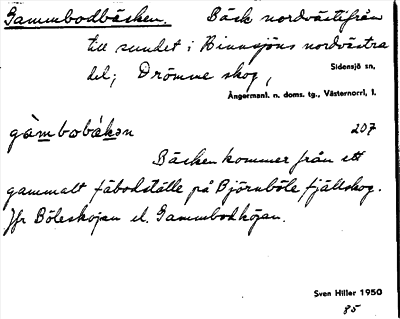 Gammbodbäcken. Bäck nordvästifrån
till sundet i Binnsjöns nordvästra
del; Drömme skog,
Sidensjö sn,
Ångermanl. n. doms. tg., Västernorrl. l.
gàmbobåkən 207
Bäcken kommer från ett
gammalt fäbodställe på Björnböle fjällskog.
Jfr Böleskojan el. Gammbodkojan.
Sven Hiller 1950
85